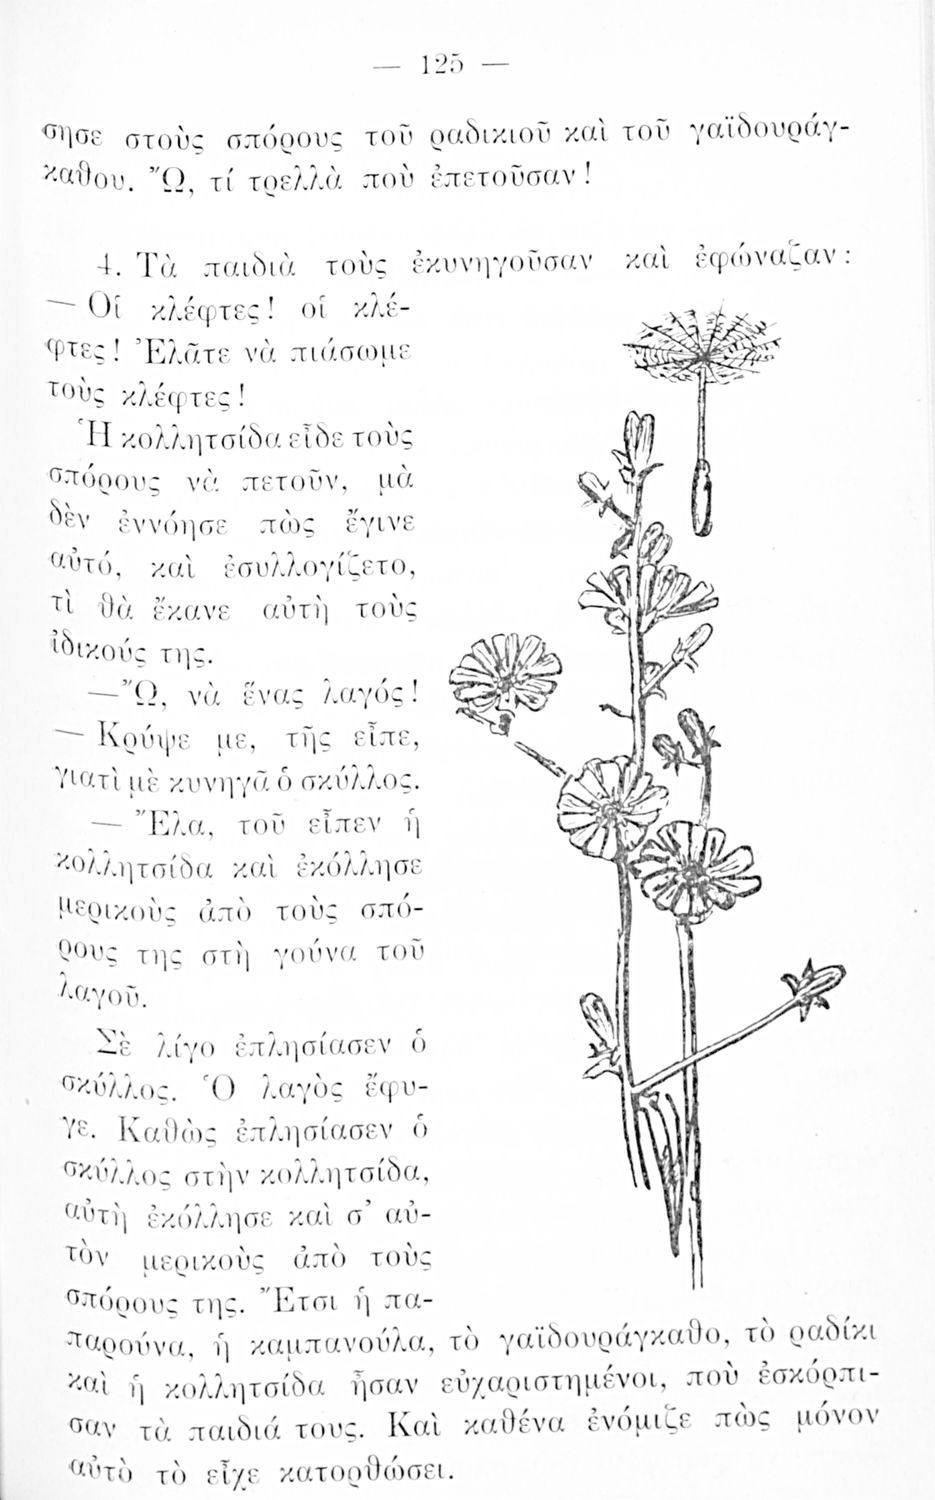 — 125 —
σησε στοὺς σπόρους τοῦ ραδικιοῦ καὶ τοῦ γαϊδουράγ-
καθου. Ὤ, τί τρελλὰ ποὺ ἐπετοῦσαν!
4. Τὰ παιδιὰ τοὺς ἐκυνηγοῦσαν καὶ ἐφώναζαν:
— Οἱ κλέφτες! οἱ κλέ-
φτες! Ἐλᾶτε νὰ πιάσωμε
τοὺς κλέφτες!
Ἡ κολλητσίδα εἶδε τοὺς
σπόρους νὰ πετοῦν, μὰ
δὲν ἐννόησε πὼς ἔγινε
αὐτό, καὶ ἐσυλλογίζετο,
τὶ θὰ ἔκανε αὐτὴ τοὺς
ἰδικούς της.
—Ὤ, νὰ ἕνας λαγός!
— Κρύψε με, τῆς εἶπε,
γιατὶ μὲ κυνηγᾶ ὁ σκύλλος.
— Ἔλα, τοῦ εἶπεν ἡ
κολλητσίδα καὶ ἐκόλλησε
μερικοὺς ἀπὸ τοὺς σπό-
ρους της στὴ γούνα τοῦ
λαγοῦ.
Σὲ λίγο ἐπλησίασεν ὁ
σκύλλος. Ὁ λαγὸς ἔφυ-
γε. Καθὼς ἐπλησίασεν ὁ
σκύλλος στὴν κολλητσίδα,
αὐτὴ ἐκόλλησε καὶ σ᾽ αὐ-
τὸν μερικοὺς ἀπὸ τοὺς
σπόρους της. Ἔτσι ἡ πα-
παρούνα, ἡ καμπανούλα, τὸ γαϊδουράγκαθο, τὸ ραδίκι
καὶ ἡ κολλητσίδα ἦσαν εὐχαριστημένοι, ποὺ ἐσκόρπι-
σαν τὰ παιδιά τους. Καὶ καθένα ἐνόμιζε πὼς μόνον
αὐτὸ τὸ εἶχε κατορθώσει.